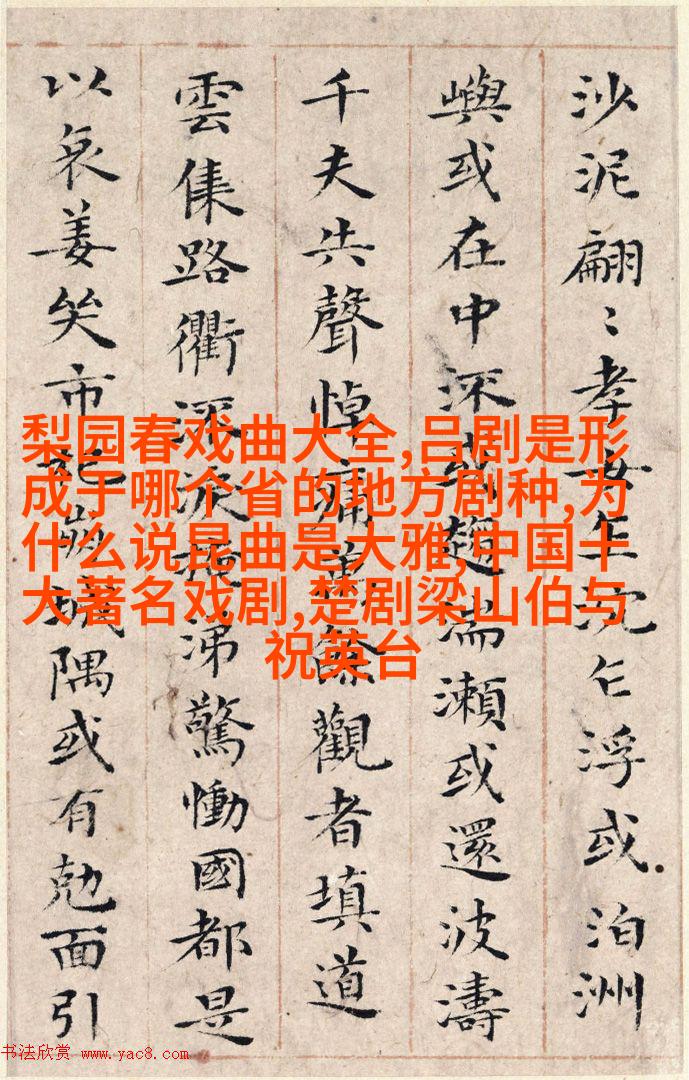 沙泥翩〻孝女乍沉乍浮或泊洲
嶼或在中沢或趨湍瀬或還波濤
千夫共聲悼痛萬餘觀者填道
雲集路衢淚掩涕驚慟國都是
以哀姜哭市杞崩城隅或有尅面引
梨园春戏曲大全,吕剧是形
成于哪个省的地方剧种,为
什么说昆曲是大雅,中国十
大著名戏剧,楚剧梁山伯与
祝英台
书法欣赏 www.yac8.com